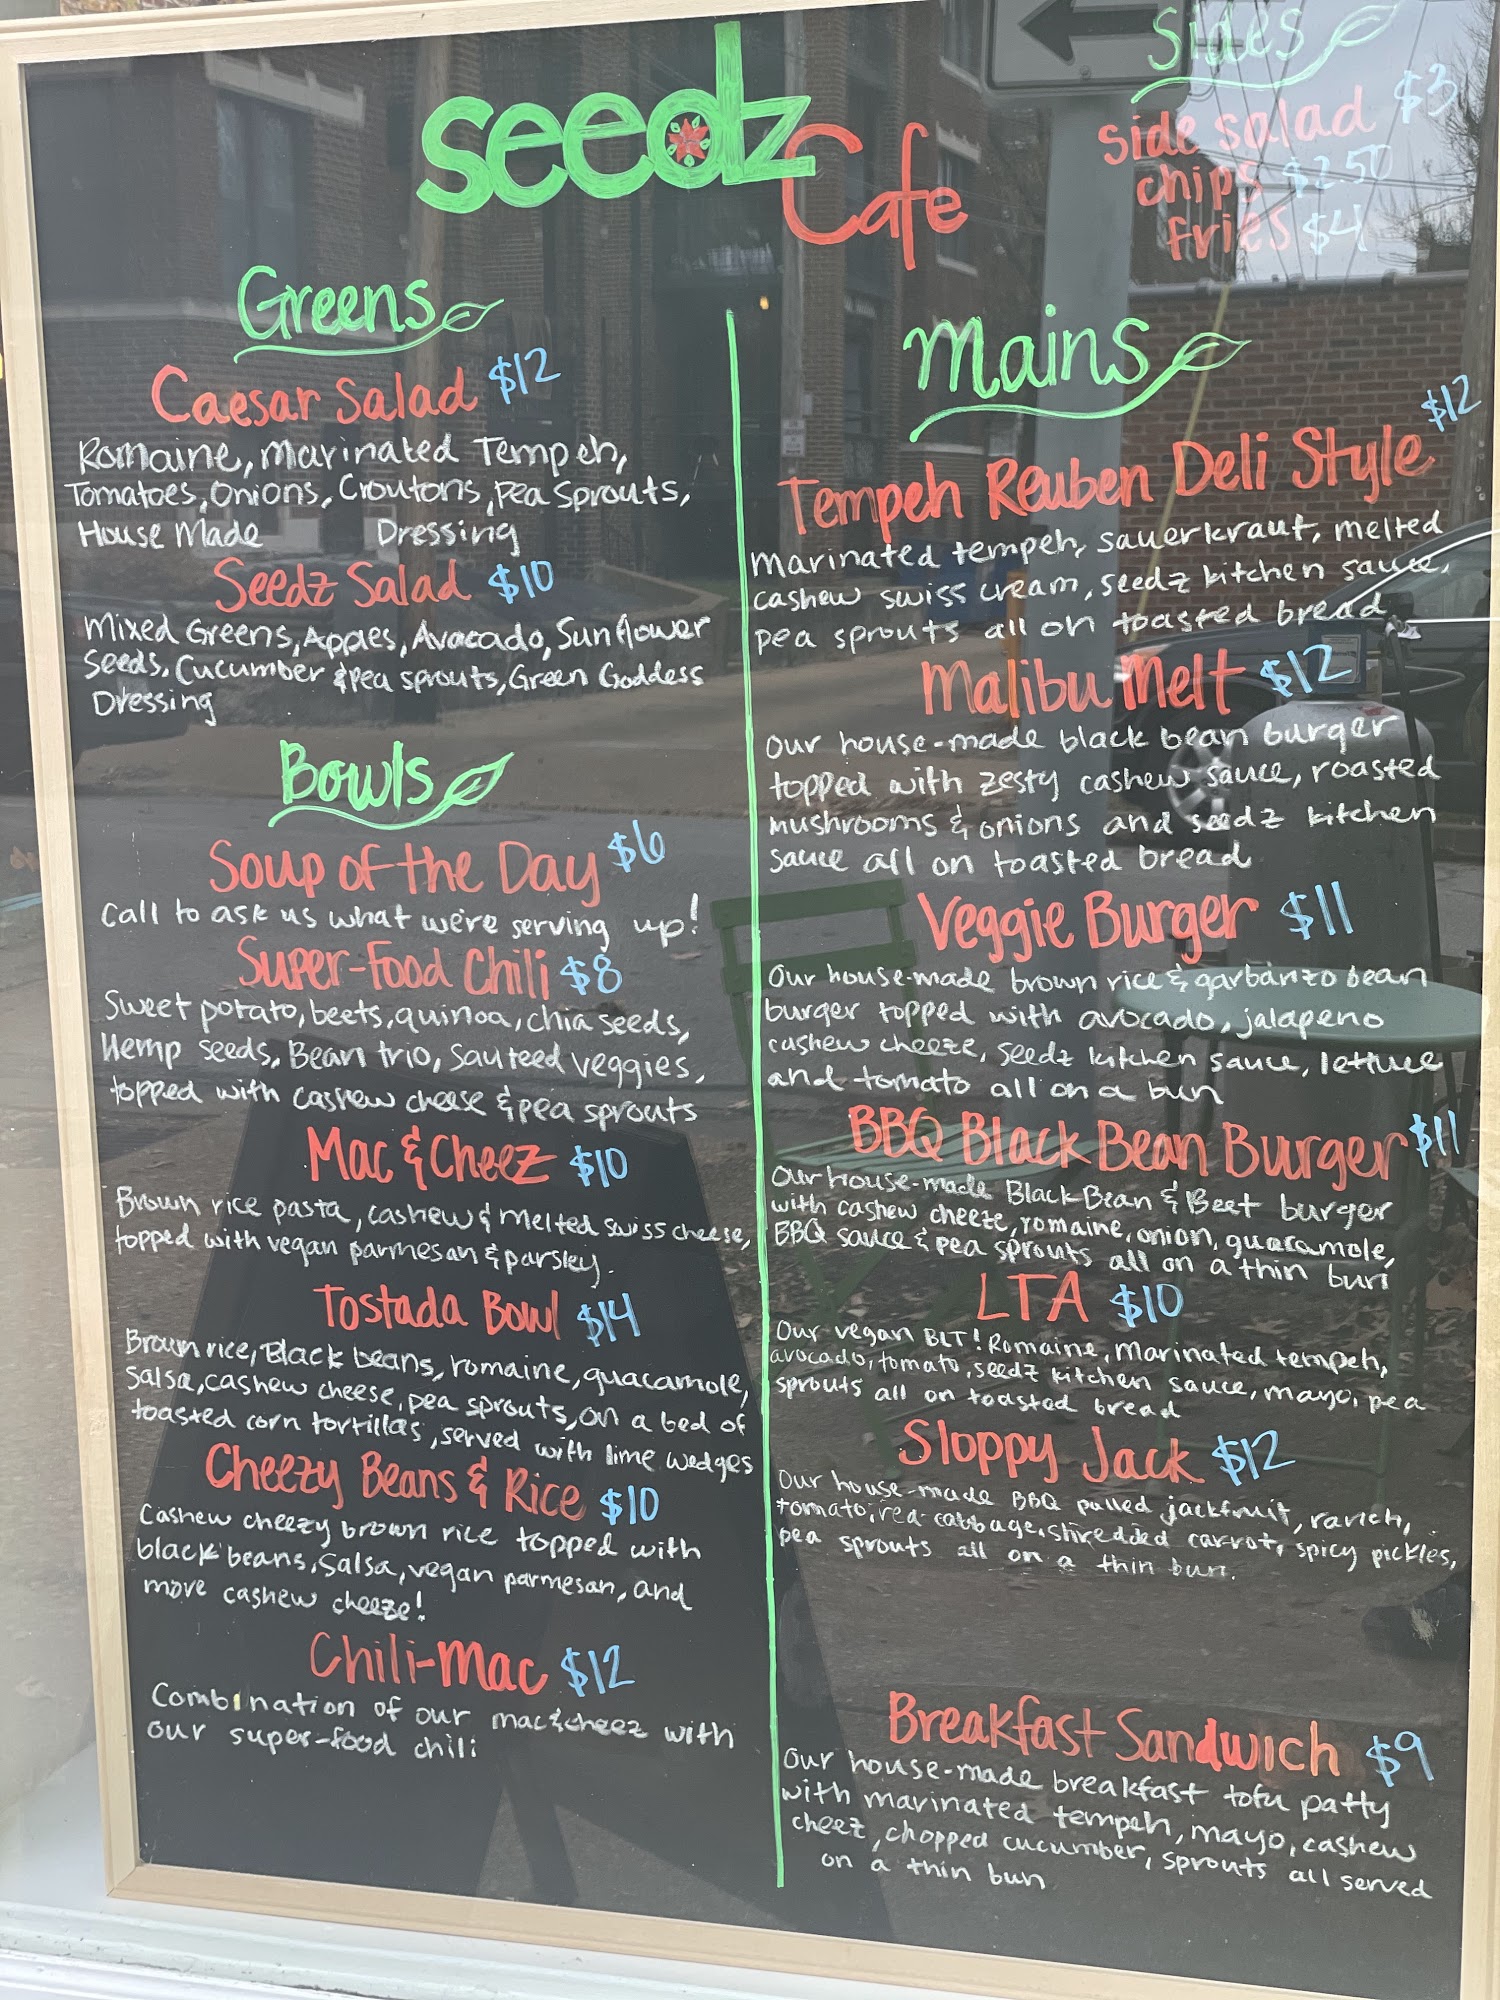 seedz Cafe
Sides
side salad $3
chips $2.50
fries $4
Greens
Caesar Salad $12
Romaine, Marinated Tempeh,
Tomatoes, Onions, Croutons, Pea Sprouts,
House Made Dressing
Seedz Salad $10
Mixed Greens, Apples, Avacado, Sunflower
Seeds, Cucumber & pea sprouts, Green Goddess
Dressing
Bowls
Soup of the Day $6
Call to ask us what we're serving up!
Super-Food Chili $8
Sweet potato, beets, quinoa, chia seeds,
Hemp seeds, Bean trio, Sauteed veggies,
topped with cashew cheese & pea sprouts
Mac & Cheez $10
Brown rice pasta, cashew & melted swiss cheese,
topped with vegan parmesan & parsley.
Tostada Bowl $14
Brown rice, Black beans, romaine, guacamole,
Salsa, cashew cheese, pea sprouts, on a bed of
toasted corn tortillas, served with lime wedges
Cheezy Beans & Rice $10
Cashew cheezy brown rice topped with
black beans, salsa, vegan parmesan, and
more cashew cheeze!
Chili-Mac $12
Combination of our mac&cheez with
our super-food chili
Mains
Tempeh Reuben Deli Style $12
Marinated tempeh, sauerkraut, melted
cashew swiss cream, seedz kitchen sauce,
pea sprouts all on toasted bread
Malibu Melt $12
Our house-made black bean burger
topped with zesty cashew sauce, roasted
mushrooms & onions and seedz kitchen
sauce all on toasted bread
Veggie Burger $11
Our house-made brown rice & garbanzo bean
burger topped with avocado, jalapeno
cashew cheeze, seedz kitchen sauce, lettuce
and tomato all on a bun
BBQ Black Bean Burger $11
Our house-made Black Bean & Beet burger
with cashew cheeze, romaine, onion, guacamole,
BBQ sauce & pea sprouts all on a thin bun
LTA $10
Our vegan BLT! Romaine, Marinated tempeh,
avocado, tomato, seedz kitchen sauce, mayo, pea
sprouts all on toasted bread
Sloppy Jack $12
Our house-made BBQ pulled jackfruit, ranch,
tomato, red cabbage, shredded carrot, spicy pickles,
pea sprouts all on a thin bun.
Breakfast Sandwich $9
Our house-made breakfast tofu patty
with marinated tempeh, mayo, cashew
cheez, chopped cucumber, sprouts all served
on a thin bun